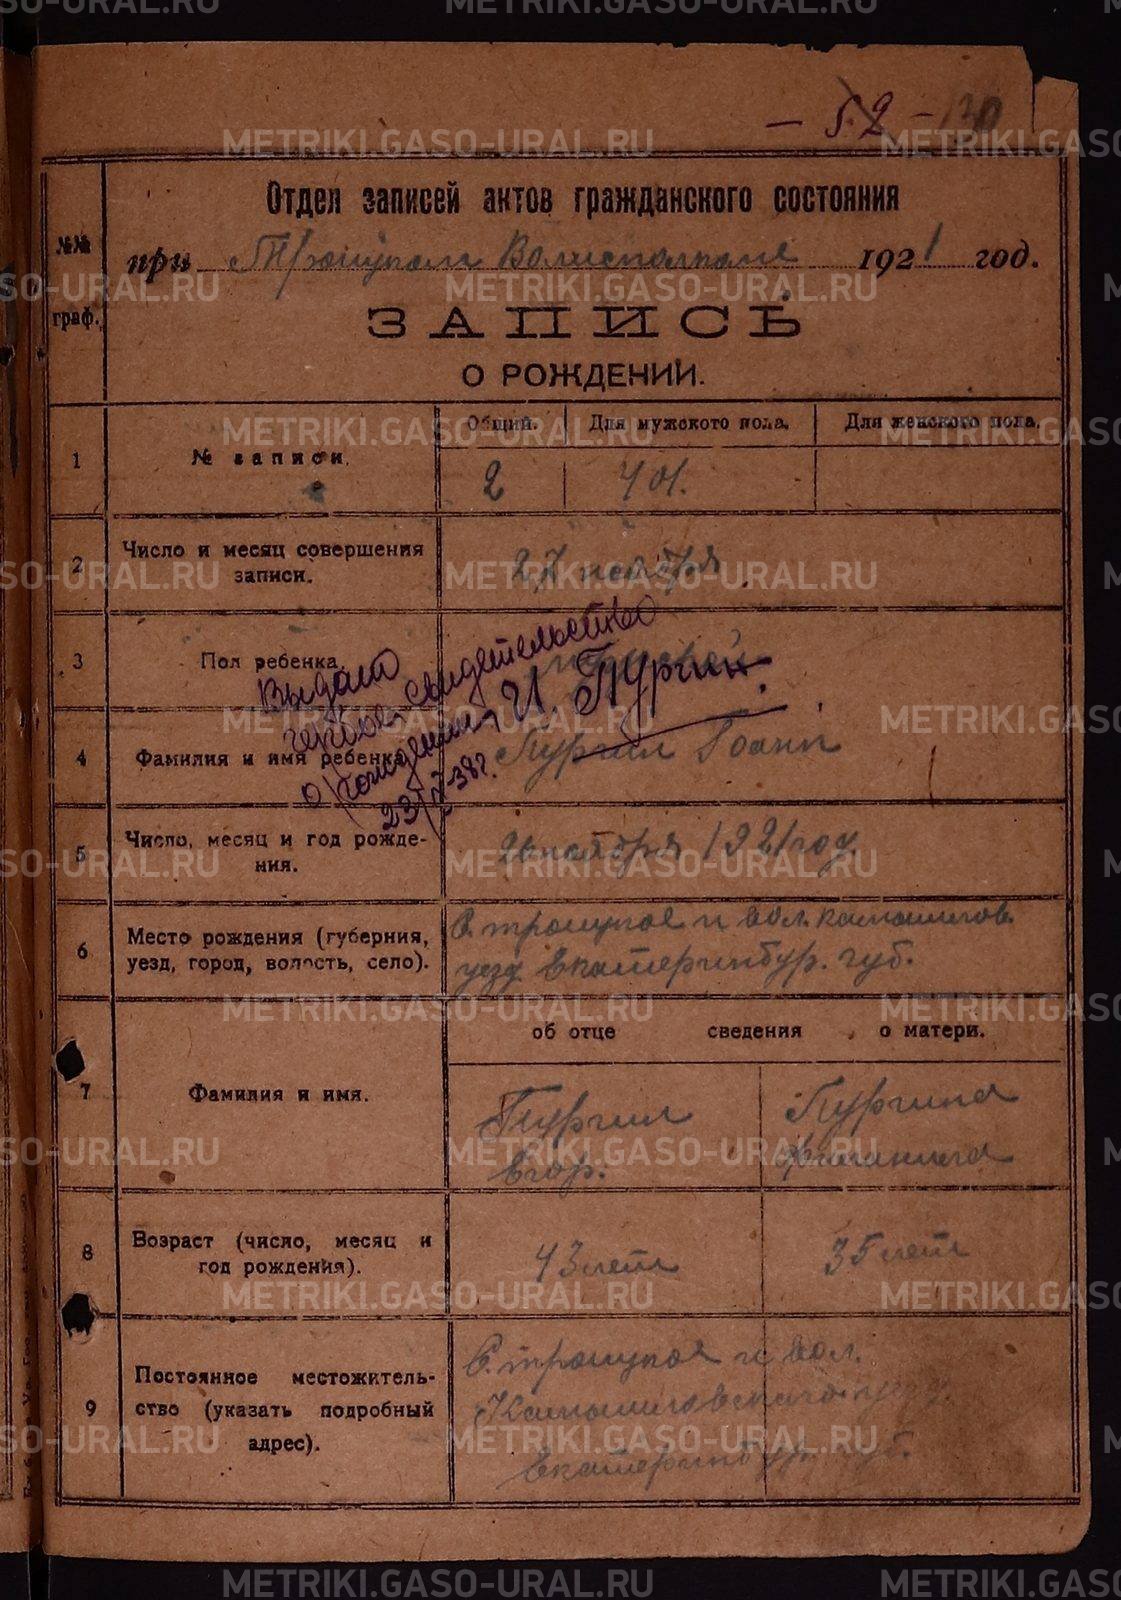 — 52 — 130
Отдел записей актов гражданского состояния
при Троицком Волисполкоме 1921 год.
№№ граф.
ЗАПИСЬ
О РОЖДЕНИИ.
Общий. Для мужского пола. Для женского пола.
1 № записи. 2 401.
2 Число и месяц совершения
записи. 27 ноября
3 Пол ребенка. мужской
Выдано
гербов. свидетельство
о рождении, И. Пургин.
23/X-38г.
4 Фамилия и имя ребенка. Пургин Иоанн
5 Число, месяц и год рожде-
ния. 26 ноября 1921 год
6 Место рождения (губерния,
уезд, город, волость, село).
С. троицкое и вол. камышлов.
уезд Екатеринбур. губ.
об отце сведения о матери.
7 Фамилия и имя.
Пургин Пургина
Егор.
8 Возраст (число, месяц и
год рождения).
43 лет 35 лет
9 Постоянное местожитель-
ство (указать подробный
адрес).
С. троицкое и вол.
Камышловского уезд.
Екатеринбур. губ.
METRIKI.GASO-URAL.RU